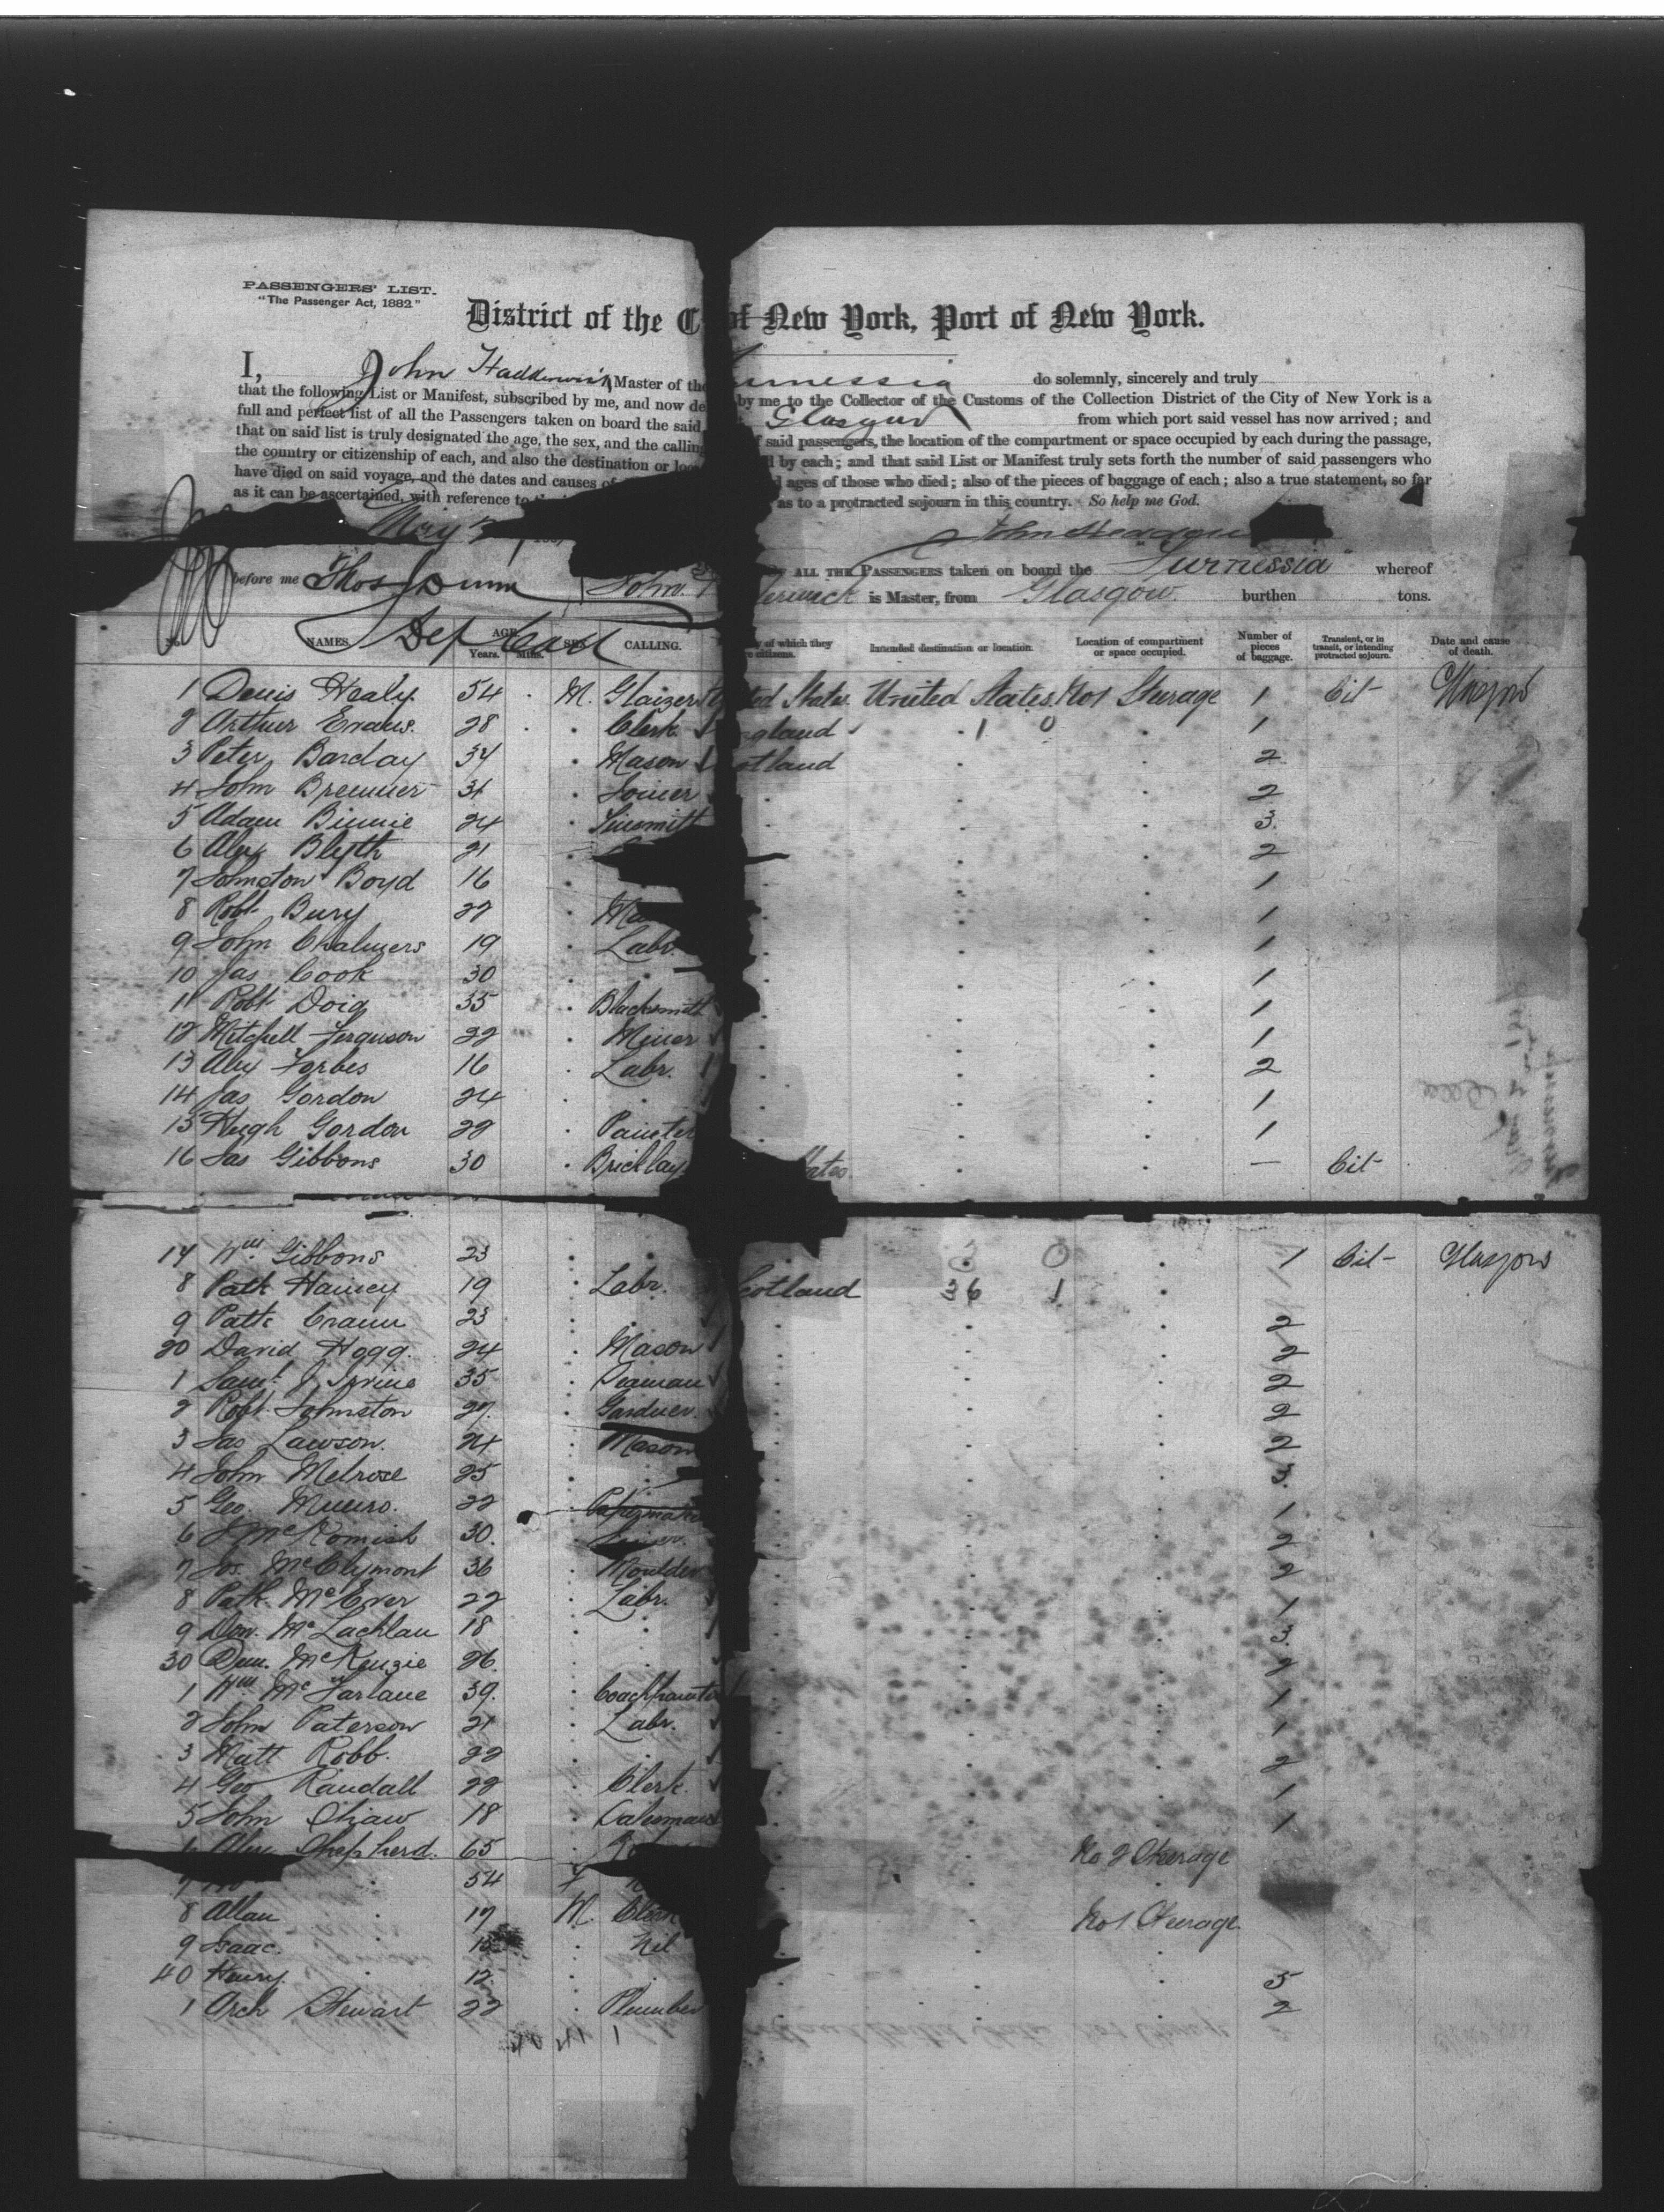 PASSENGERS' LIST.
"The Passenger Act, 1882"
District of the C of New York, Port of New York.
I, John Master of the rnessia do solemnly, sincerely and truly
that the following List or Manifest, subscribed by me, and now de by me to the Collector of the Customs of the Collection District of the City of New York is a
full and perfect list of all the Passengers taken on board the said Glasgow from which port said vessel has now arrived; and
that on said list is truly designated the age, the sex, and the calling of said passengers, the location of the compartment or space occupied by each during the passage,
the country or citizenship of each, and also the destination or loca d by each; and that said List or Manifest truly sets forth the number of said passengers who
have died on said voyage, and the dates and causes of d ages of those who died; also of the pieces of baggage of each; also a true statement, so far
as it can be ascertained, with reference to as to a protracted sojourn in this country. So help me God.
May John
before me Thos Dunn John ALL THE PASSENGERS taken on board the "Furnessia" whereof
derwick is Master, from Glasgow burthen tons.
Dep Coll
No. NAMES. AGE. Years. Mths. SEX. CALLING. y of which they re citizens. Intended destination or location. Location of compartment or space occupied. Number of pieces of baggage. Transient, or in transit, or intending protracted sojourn. Date and cause of death.
1 Denis Healy 54 . M. Glaizer ted States. United States. No1 Steerage 1 Cit- Glasgow
2 Arthur Evans. 28 . . Clerk ngland . 1 0 . 1
3 Peter Barclay 34 . Mason otland . . 2
4 John Bremner 31 . Joiner . . . 2
5 Adam Binnie 24 . Tinsmith . . . 3.
6 Alex Blyth 21 . . . . 2
7 Johnston Boyd 16 . . . . 1
8 Robt Bury 27 . Ma . . . 1
9 John Chalmers 19 . Labr. . . . 1
10 Jas Cook 30 . . . . 1
11 Robt Doig 35 . Blacksmith . . . 1
12 Mitchell Ferguson 22 . Miner . . . 1
13 Alex Forbes 16 . Labr. . . . 2
14 Jas Gordon 24 . . . . . 1
15 Hugh Gordon 22 . Painter . . . 1
16 Jas Gibbons 30 . Bricklay tates . . — Cit-
17 Wm Gibbons 23 . . 3 0 . 1 Cit- Glasgow
8 Patk Hainey 19 . Labr. Scotland 36 1 . 1
9 Patk Crann 23 . . . . . 2
20 David Hogg. 24 . Mason . . . 2
1 Saml J Irvine 35 . . . . 2
2 Robt Johnston 27. . Gardner. . . . 2
3 Jas Lawson. 24 . Mason . . . 2
4 John Melrose 25 . . . . . 3.
5 Geo. Munro. 22 . Papermaker . . . 1
6 J McKomish 30. . . . . 2
7 Jos. McClymont 36 . Moulder . . . 2
8 Patk. McEver 22 . Labr. . . . 1
9 Don. McLachlan 18 . . . . . 3.
30 Dun. McKenzie 26. . . . . . 2
1 Wm McFarlane 39. . Coachpainter . . . 1
2 John Paterson 21 . Labr. . . . 1
3 Matt Robb. 22 . . . . . 2
4 Geo Randall 22 . Clerk. . . . 1
5 John Shaw 18 . Salesman . . . 1
6 Alex Shepherd. 65 . . . No 2 Steerage
54 . .
8 Allan . 17 M. Clerk . . No 1 Steerage.
9 Isaac. . 15 . Nil . . .
40 Henry. . 12. . . . . . 5
1 Arch Stewart 22 . Plumber . . . 2
40 41 1